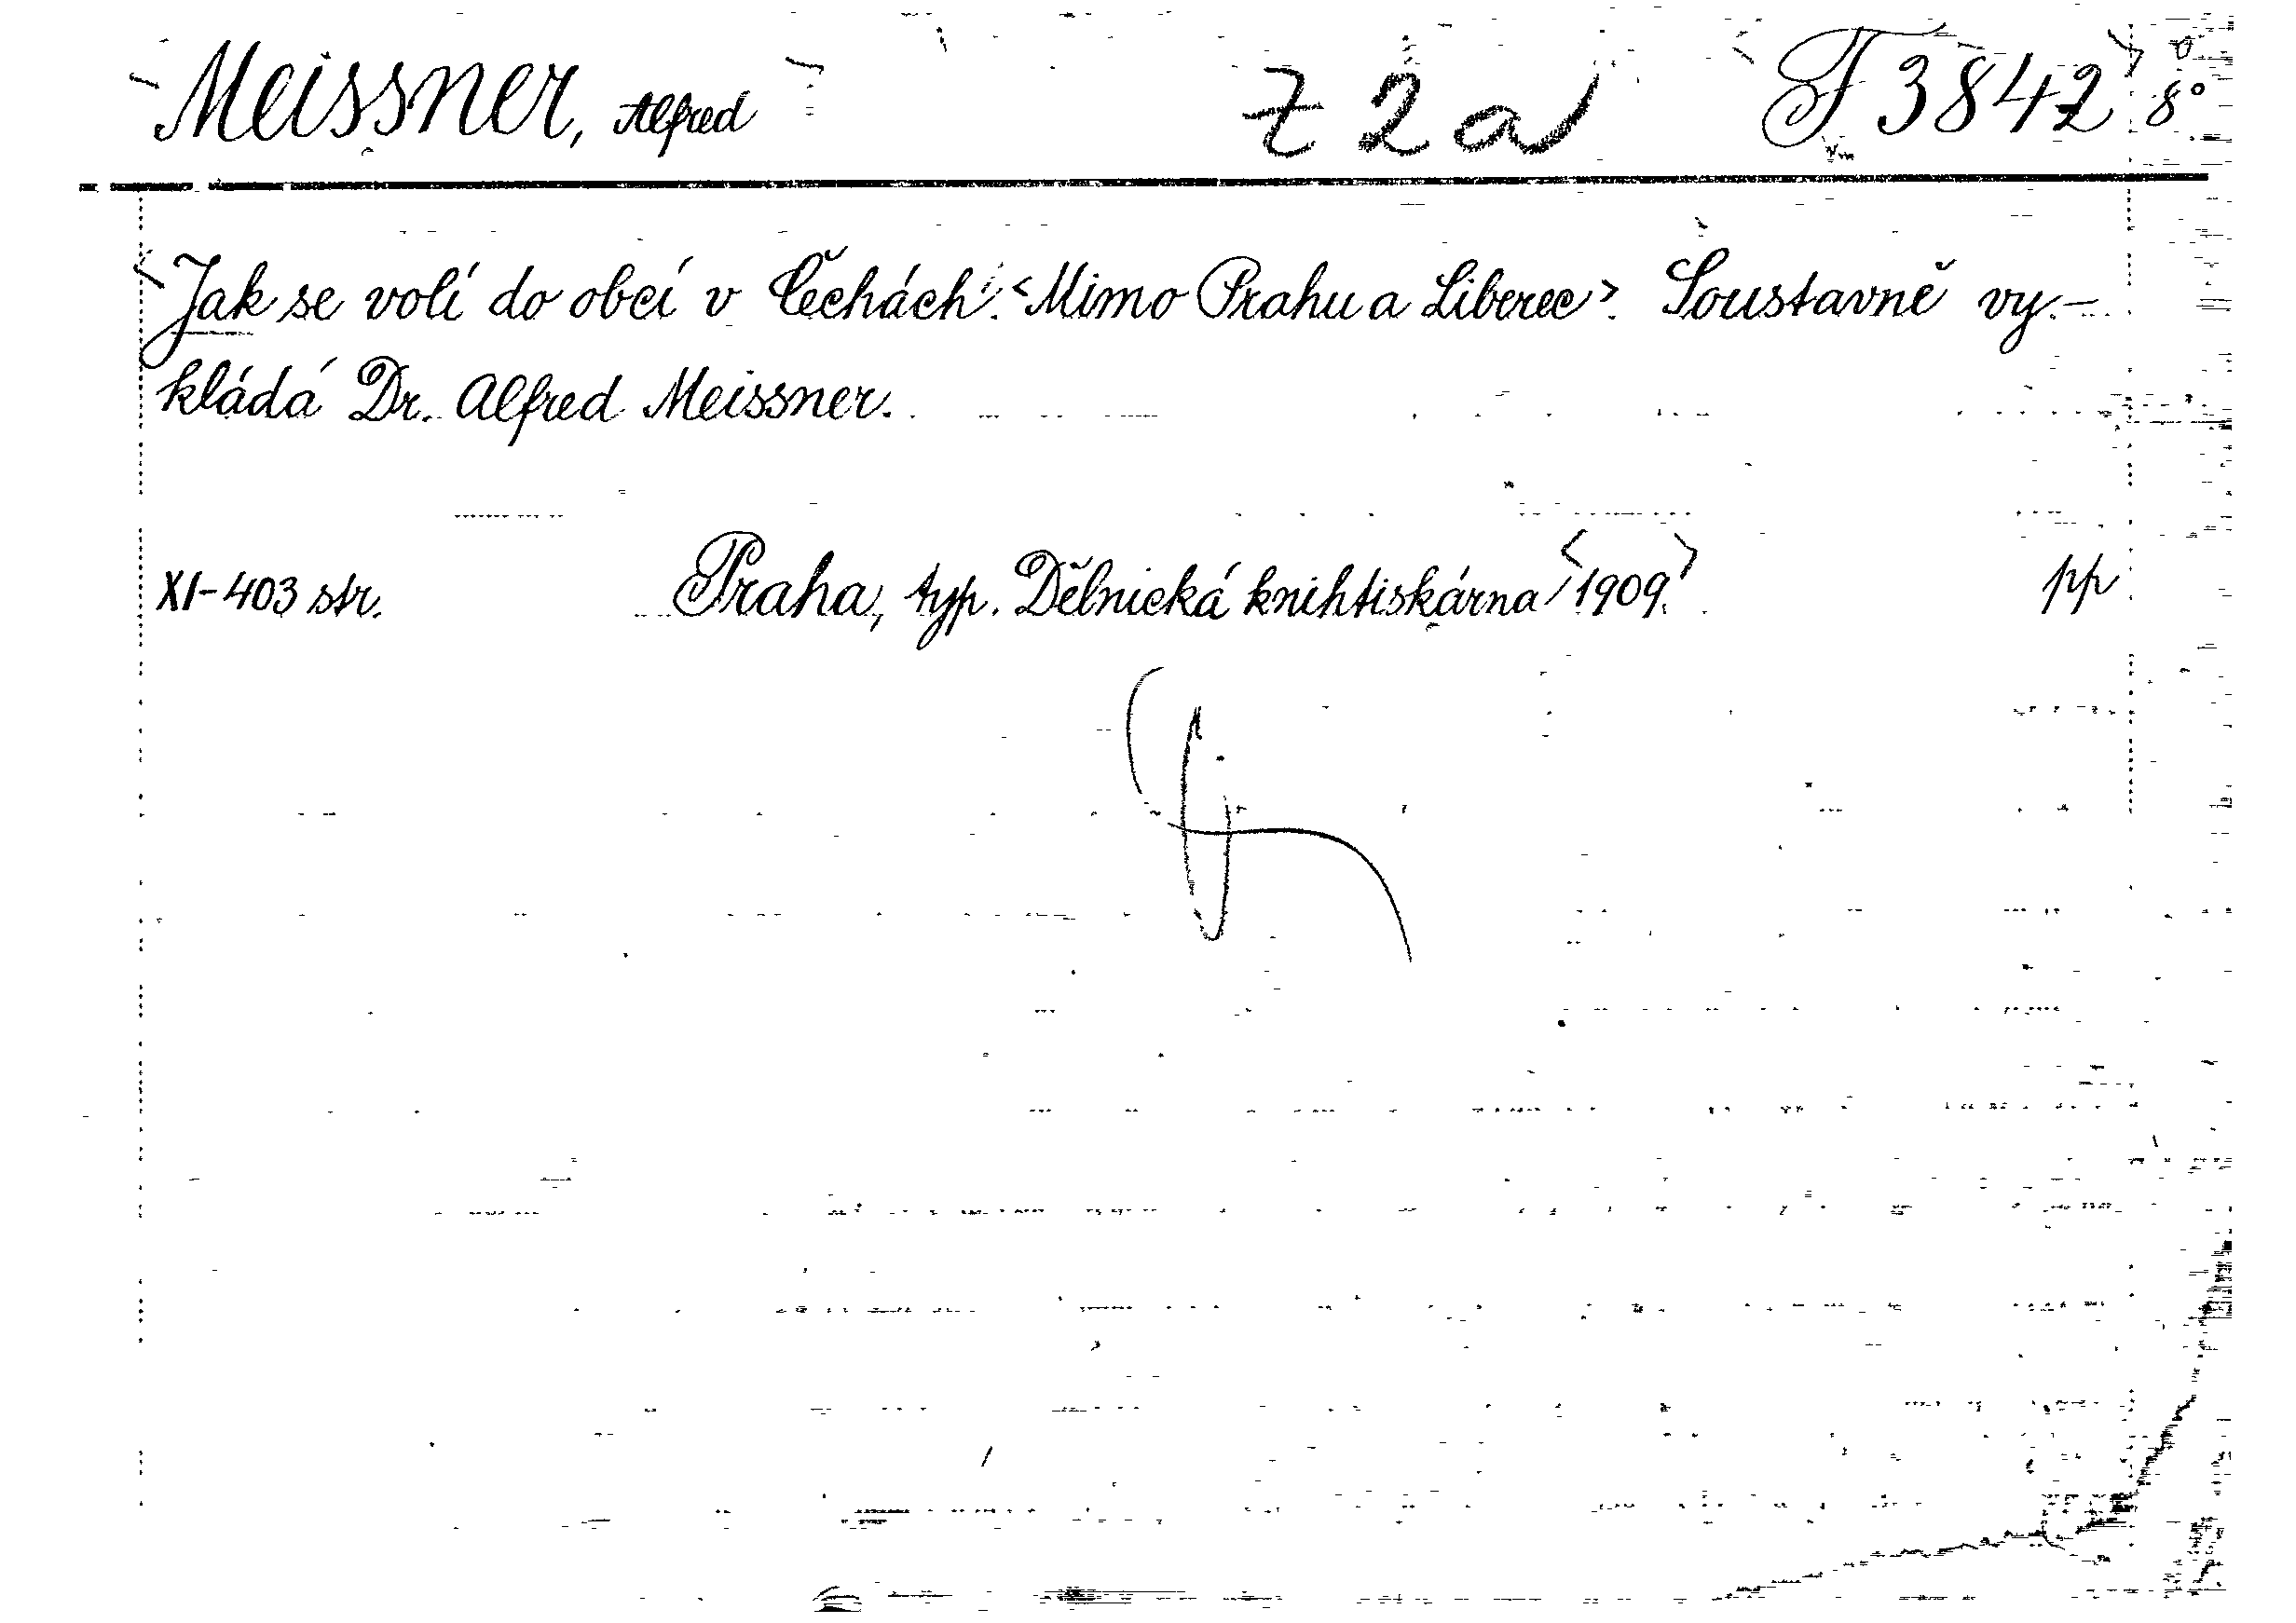 Meissner, Alfred z 2 a T 3842 8°
Jak se volí do obcí v Čechách. <Mimo Prahu a Liberec>. Soustavně vy-
kládá Dr. Alfred Meissner.
XI-403 str. Praha, typ. Dělnická knihtiskárna <1909> pp